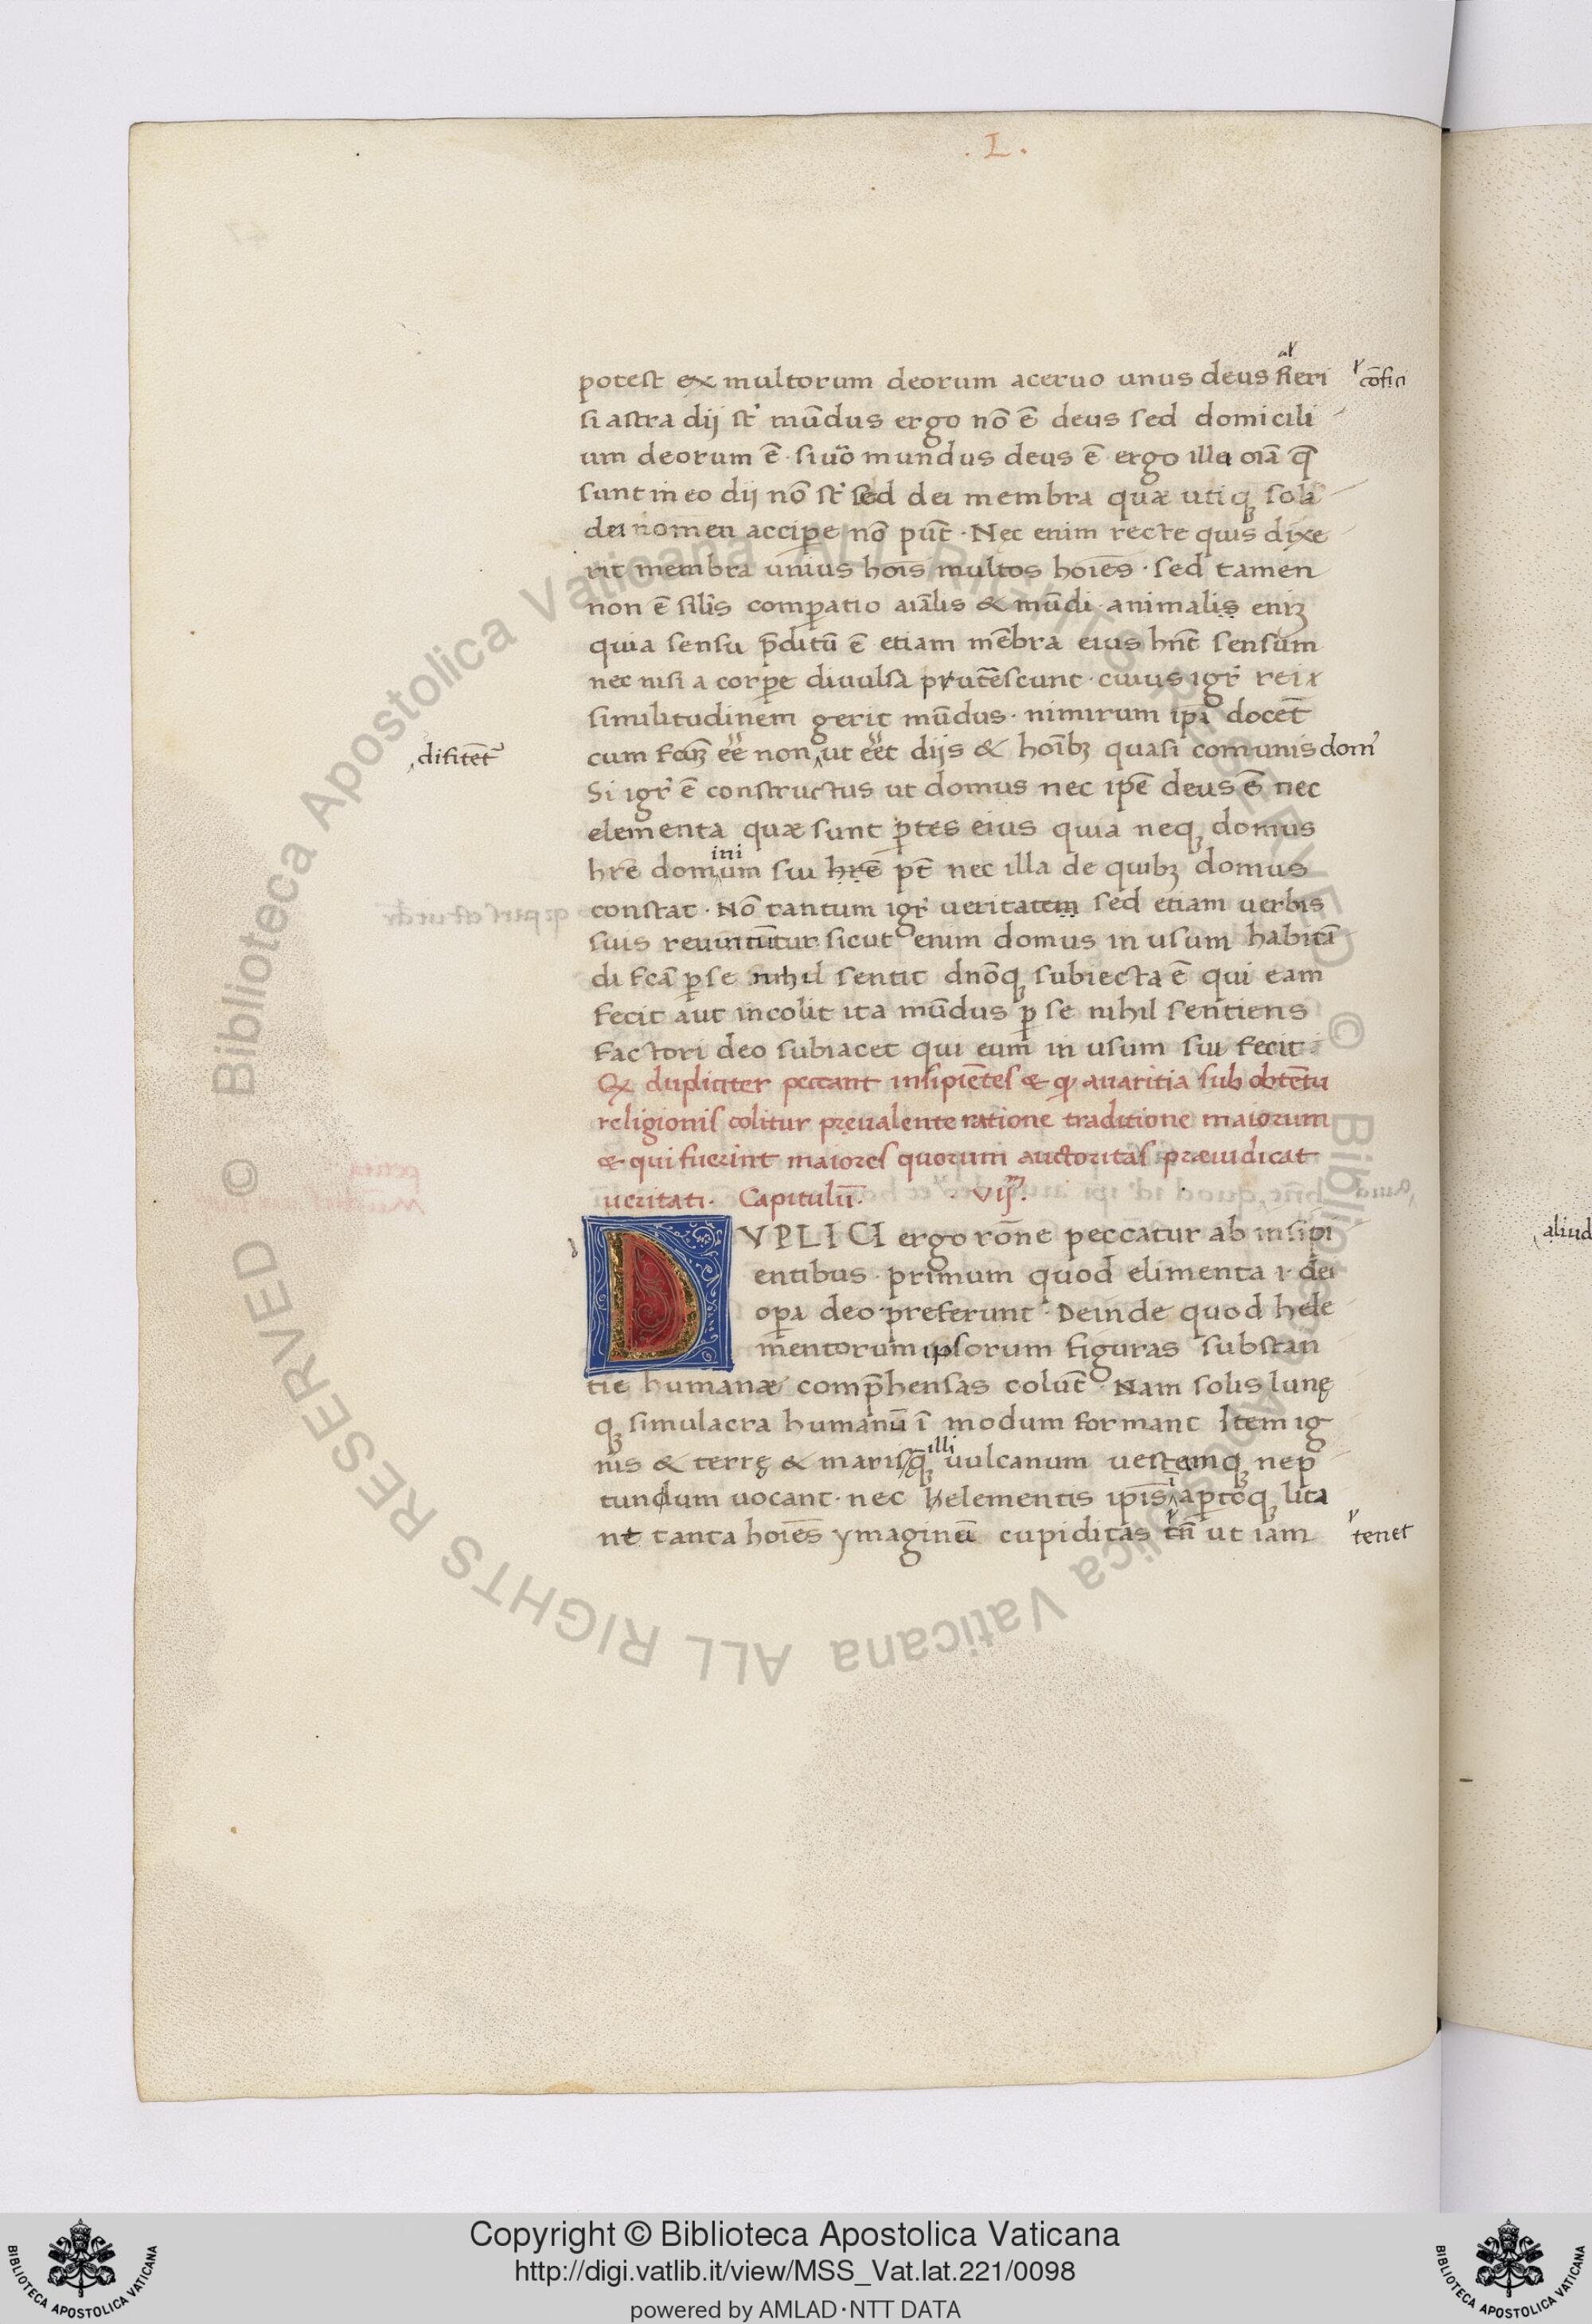 . I .
potest ex multorum deorum aceruo unus deus fieri
cōfici
si astra dij st̄ mūdus ergo nō ē deus sed domicili
um deorum ē · siuō mundus deus ē · ergo illa oīa q̄
sunt in eo dij nō st̄ sed dei membra quæ utiqꝫ sola
dei nomen accipe nō pn̄t · Nec enim recte quis dixe
rit membra unius hoīs multos hoīes · sed tamen
non ē silīs comꝑatio aīalis & mūdi · animalis enīꝫ
quia sensu p̄ditū ē etiam mēbra eius hn̄t sensum
nec nisi a corꝑe diuulsa prutēscunt · cuius igr̄ rei
similitudinem gerit mūdus · nimirum ipī docēt
difitēt᷑
cum fcāꝫ ēē non ut ēēt dijs & hoībꝫ quasi comunis dom᷒
Si igr̄ ē constructus ut domus nec ipē deus ē nec
elementa quæ sunt ꝑtes eius quia neqꝫ domus
ini
hr̄e domum sui hr̄e pt̄ nec illa de quibꝫ domus
constat · Nō tantum igr̄ ueritatem sed etiam uerbis
suis reuincūtur sicut enim domus in usum habitā
di fcā ꝑ se nihil sentit dn̄oqꝫ subiecta ē qui eam
fecit aut incolit ita mūdus ꝑ se nihil sentiens
factori deo subiacet qui eum in usum sui fecit ·
Qꝫ dupliciter peccant insipiētes & qꝫ auaritia sub obtētu
religionis colitur preualente ratione traditione maiorum
& qui fuerint maiores quorum auctoritas præiudicat
ueritati · Capitulū · VIJ.
DVPLICI ergo rōne peccatur ab insipi
entibus · primum quod elimenta i · dei
oꝑa deo preferunt · Deinde quod hele
mentorum ipsorum figuras substan
tie humanæ comp̄hensas colūt · Nam solis lunę
qꝫ simulacra humanū ī modum formant Item ig
illi
nis & terrę & maris qꝫ uulcanum uestamqꝫ nep
tundum uocant · nec helementis ipīs aꝑtoqꝫ lita
nt tanta hoīes ymaginū cupiditas tn̄ ut iam
tenet
aliud
Copyright © Biblioteca Apostolica Vaticana
http://digi.vatlib.it/view/MSS_Vat.lat.221/0098
powered by AMLAD·NTT DATA
BIBLIOTECA APOSTOLICA VATICANA
BIBLIOTECA APOSTOLICA VATICANA
© Biblioteca Apostolica Vaticana ALL RIGHTS RESERVED © Biblioteca Apostolica Vaticana ALL RIGHTS RESERVED